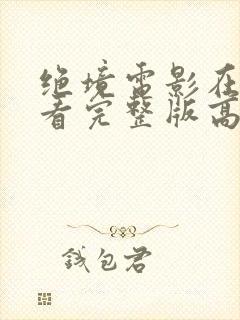 绝境电影在
看完整版高
钱包君